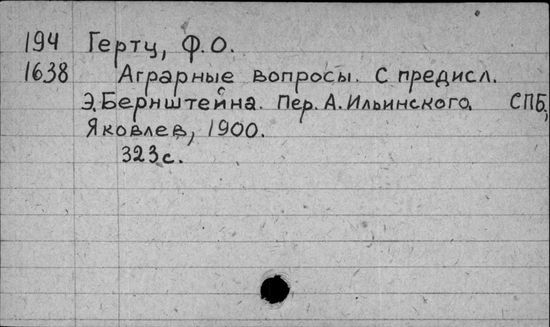 194 Гертц, Ф.О.
1638 Аграрные вопросы. С предисл.
Э.Бернштейна. Пер. А.Ильинского. СПБ,
Яковлев, 1900.
323с.